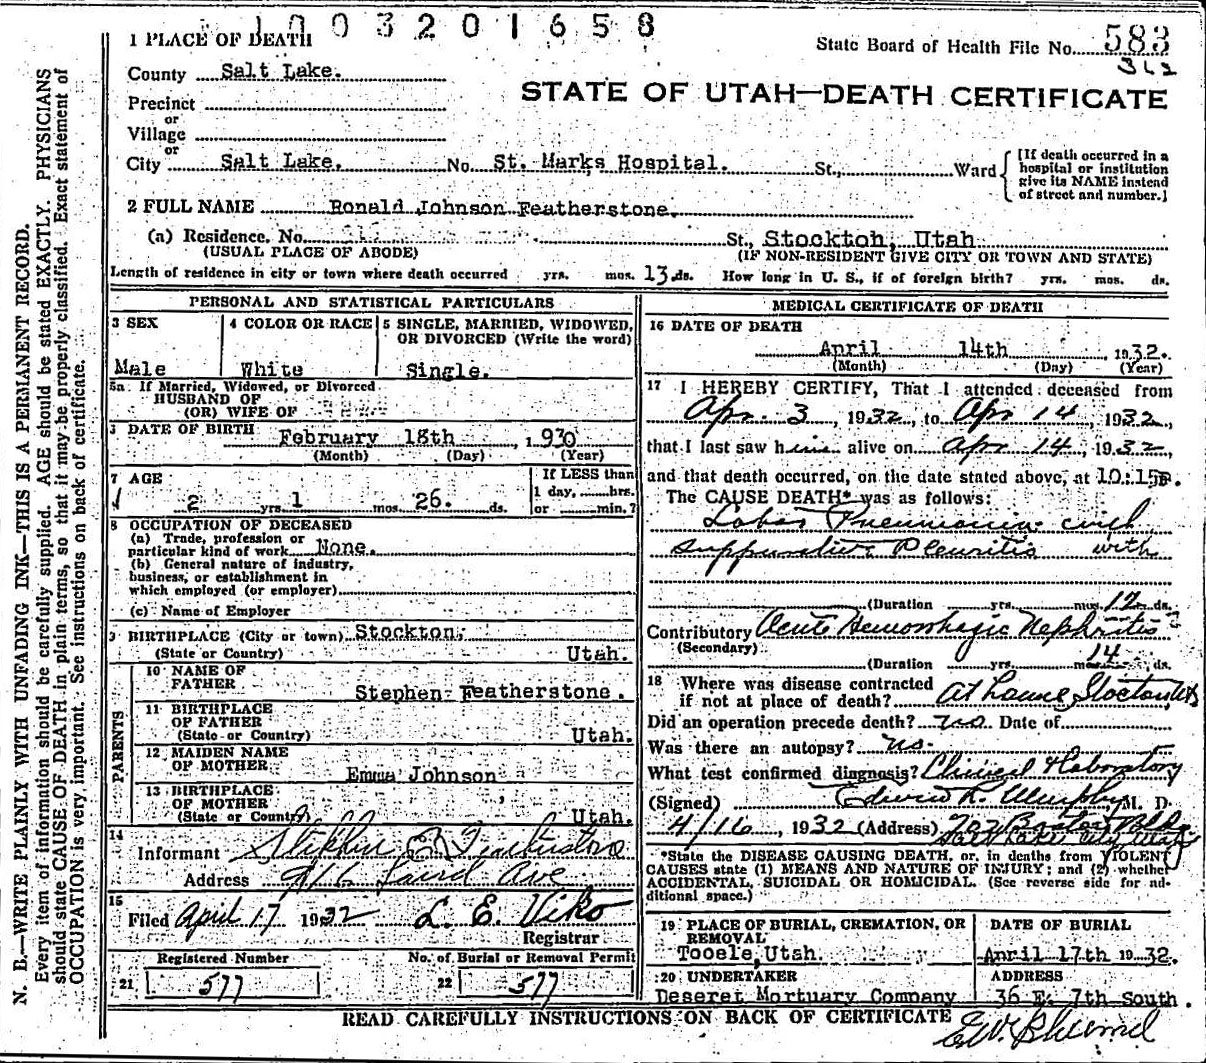 1003201658
1 PLACE OF DEATH
State Board of Health File No. 583
County Salt Lake.
STATE OF UTAH—DEATH CERTIFICATE
Precinct
or
Village
or
City Salt Lake. No. St. Marks Hospital. St., Ward
[If death occurred in a
hospital or institution
give its NAME instead
of street and number.]
2 FULL NAME Ronald Johnson Featherstone.
(a) Residence. No. St., Stockton, Utah
(USUAL PLACE OF ABODE) (IF NON-RESIDENT GIVE CITY OR TOWN AND STATE)
Length of residence in city or town where death occurred yrs. mos. 13 ds. How long in U. S., if of foreign birth? yrs. mos. ds.
PERSONAL AND STATISTICAL PARTICULARS
3 SEX
Male
4 COLOR OR RACE
White
5 SINGLE, MARRIED, WIDOWED,
OR DIVORCED (Write the word)
Single.
5a If Married, Widowed, or Divorced
HUSBAND OF
(OR) WIFE OF
6 DATE OF BIRTH February 18th, 1930
(Month) (Day) (Year)
7 AGE
2 yrs. 1 mos. 26. ds.
If LESS than
1 day, hrs.
or min.?
8 OCCUPATION OF DECEASED
(a) Trade, profession or
particular kind of work None.
(b) General nature of industry,
business, or establishment in
which employed (or employer)
(c) Name of Employer
9 BIRTHPLACE (City or town) Stockton.
(State or Country) Utah.
PARENTS
10 NAME OF
FATHER Stephen Featherstone.
11 BIRTHPLACE
OF FATHER
(State or Country) Utah.
12 MAIDEN NAME
OF MOTHER Emma Johnson
13 BIRTHPLACE
OF MOTHER
(State or Country) Utah.
14
Informant
Address 916 Laird Ave
15
Filed April 17 1932 L. E. Viko
Registrar
Registered Number
21 577
No. of Burial or Removal Permit
22 577
MEDICAL CERTIFICATE OF DEATH
16 DATE OF DEATH
April 14th, 1932.
(Month) (Day) (Year)
17 I HEREBY CERTIFY, That I attended deceased from
Apr. 3, 1932, to Apr 14, 1932,
that I last saw him alive on Apr 14, 1932,
and that death occurred, on the date stated above, at 10:15P.
The CAUSE DEATH* was as follows:
Lobar Pneumonia with
suppurative Pleuritis with
(Duration yrs. mos. 12 ds.
Contributory Acute Hemorrhagic Nephritis
(Secondary)
(Duration yrs. mos. 14 ds.
18 Where was disease contracted
if not at place of death? At home Stockton Ut
Did an operation precede death? no Date of
Was there an autopsy? no.
What test confirmed diagnosis? Clinical & Laboratory
(Signed) Edwin R. Murphy M. D.
4/16, 1932 (Address)
Salt Lake City Utah
*State the DISEASE CAUSING DEATH, or, in deaths from VIOLENT
CAUSES state (1) MEANS AND NATURE OF INJURY; and (2) whether
ACCIDENTAL, SUICIDAL OR HOMICIDAL. (See reverse side for additional space.)
19 PLACE OF BURIAL, CREMATION, OR
REMOVAL
Tooele, Utah.
DATE OF BURIAL
April 17th 1932.
20 UNDERTAKER
Deseret Mortuary Company
ADDRESS
36 E. 7th South.
READ CAREFULLY INSTRUCTIONS ON BACK OF CERTIFICATE
N. B.—WRITE PLAINLY WITH UNFADING INK—THIS IS A PERMANENT RECORD.
Every item of information should be carefully supplied. AGE should be stated EXACTLY. PHYSICIANS
should state CAUSE OF DEATH in plain terms, so that it may be properly classified. Exact statement of
OCCUPATION is very important. See instructions on back of certificate.